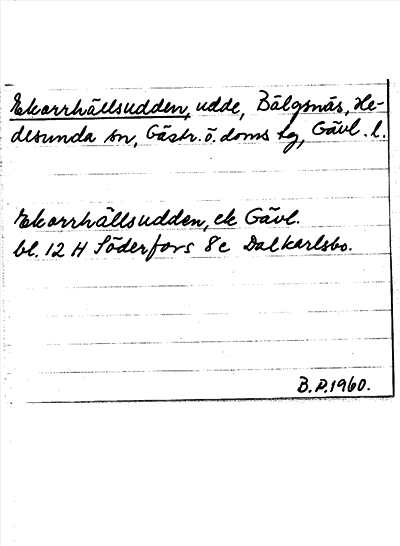 Ekorrhällsudden, udde, Bälgsnäs, He-
desunda sn, Gästr. ö. doms tg, Gävl. l.
Ekorrhällsudden, ek Gävl.
bl. 12 H Söderfors 8 c Dalkarlsbo.
B.P. 1960.